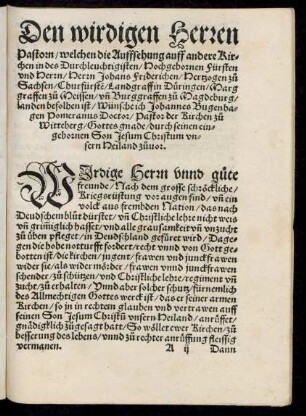 Den wirdigen Herren
Pastorn / welchen die Auffsehung auff andere Kir-
chen in des Durchleuchtigisten / Hochgebornen Fürsten
vnd Herrn / Herrn Johans Friderichen / Hertzogen zů
Sachsen / Churfürste / Landgraff in Düringen / Marg
graffen zů Meissen / vn̄ Burggraffen zů Magdeburg /
landen befolhen ist / Wünsch ich Johannes Bugenha-
gen Pomeranus Doctor / Pastor der Kirchen zů
Witteberg / Gottes gnade / durch seinen ein-
gebornen Son Jesum Christum vn-
sern Heiland zůuor.
WIrdige Herrn vnnd gůte
freunde / Nach dem grosse schröckliche /
Kriegsrüstung vor augen sind / vn̄ ein
volck auß frembden Nation / das nach
Deudschem blůt dürstet / vn̄ Christliche lehre nicht weis
vn̄ grimmigklich hasset / vnd alle grausamkeit vn̄ vnzucht
zů üben pfleget / in Deudschland gefüret wird / Dage-
gen die hohe notturfft fordert / recht vnnd von Gott ge-
botten ist / die kirchen / jugent / frawen vnd junckfrawen
wider sie / als wider mörder / frawen vnnd junckfrawen
schender / zů schützen / vnd Christliche lehre / regiment vn̄
zucht / zů erhalten / Vnnd aber solcher schutz / fürnemlich
des Allmechtigen Gottes werck ist / das er seiner armen
Kirchen / so jn in rechtem glauben vnd vertrawen auff
seinen Son Jesum Christū vnsern Heiland / anrüffet /
gnädigklich zůgesagt hatt / So wöllet ewer Kirchen / zů
besserung des lebens / vnnd zů rechter anrüffung fleissig
vermanen. A ij Dann